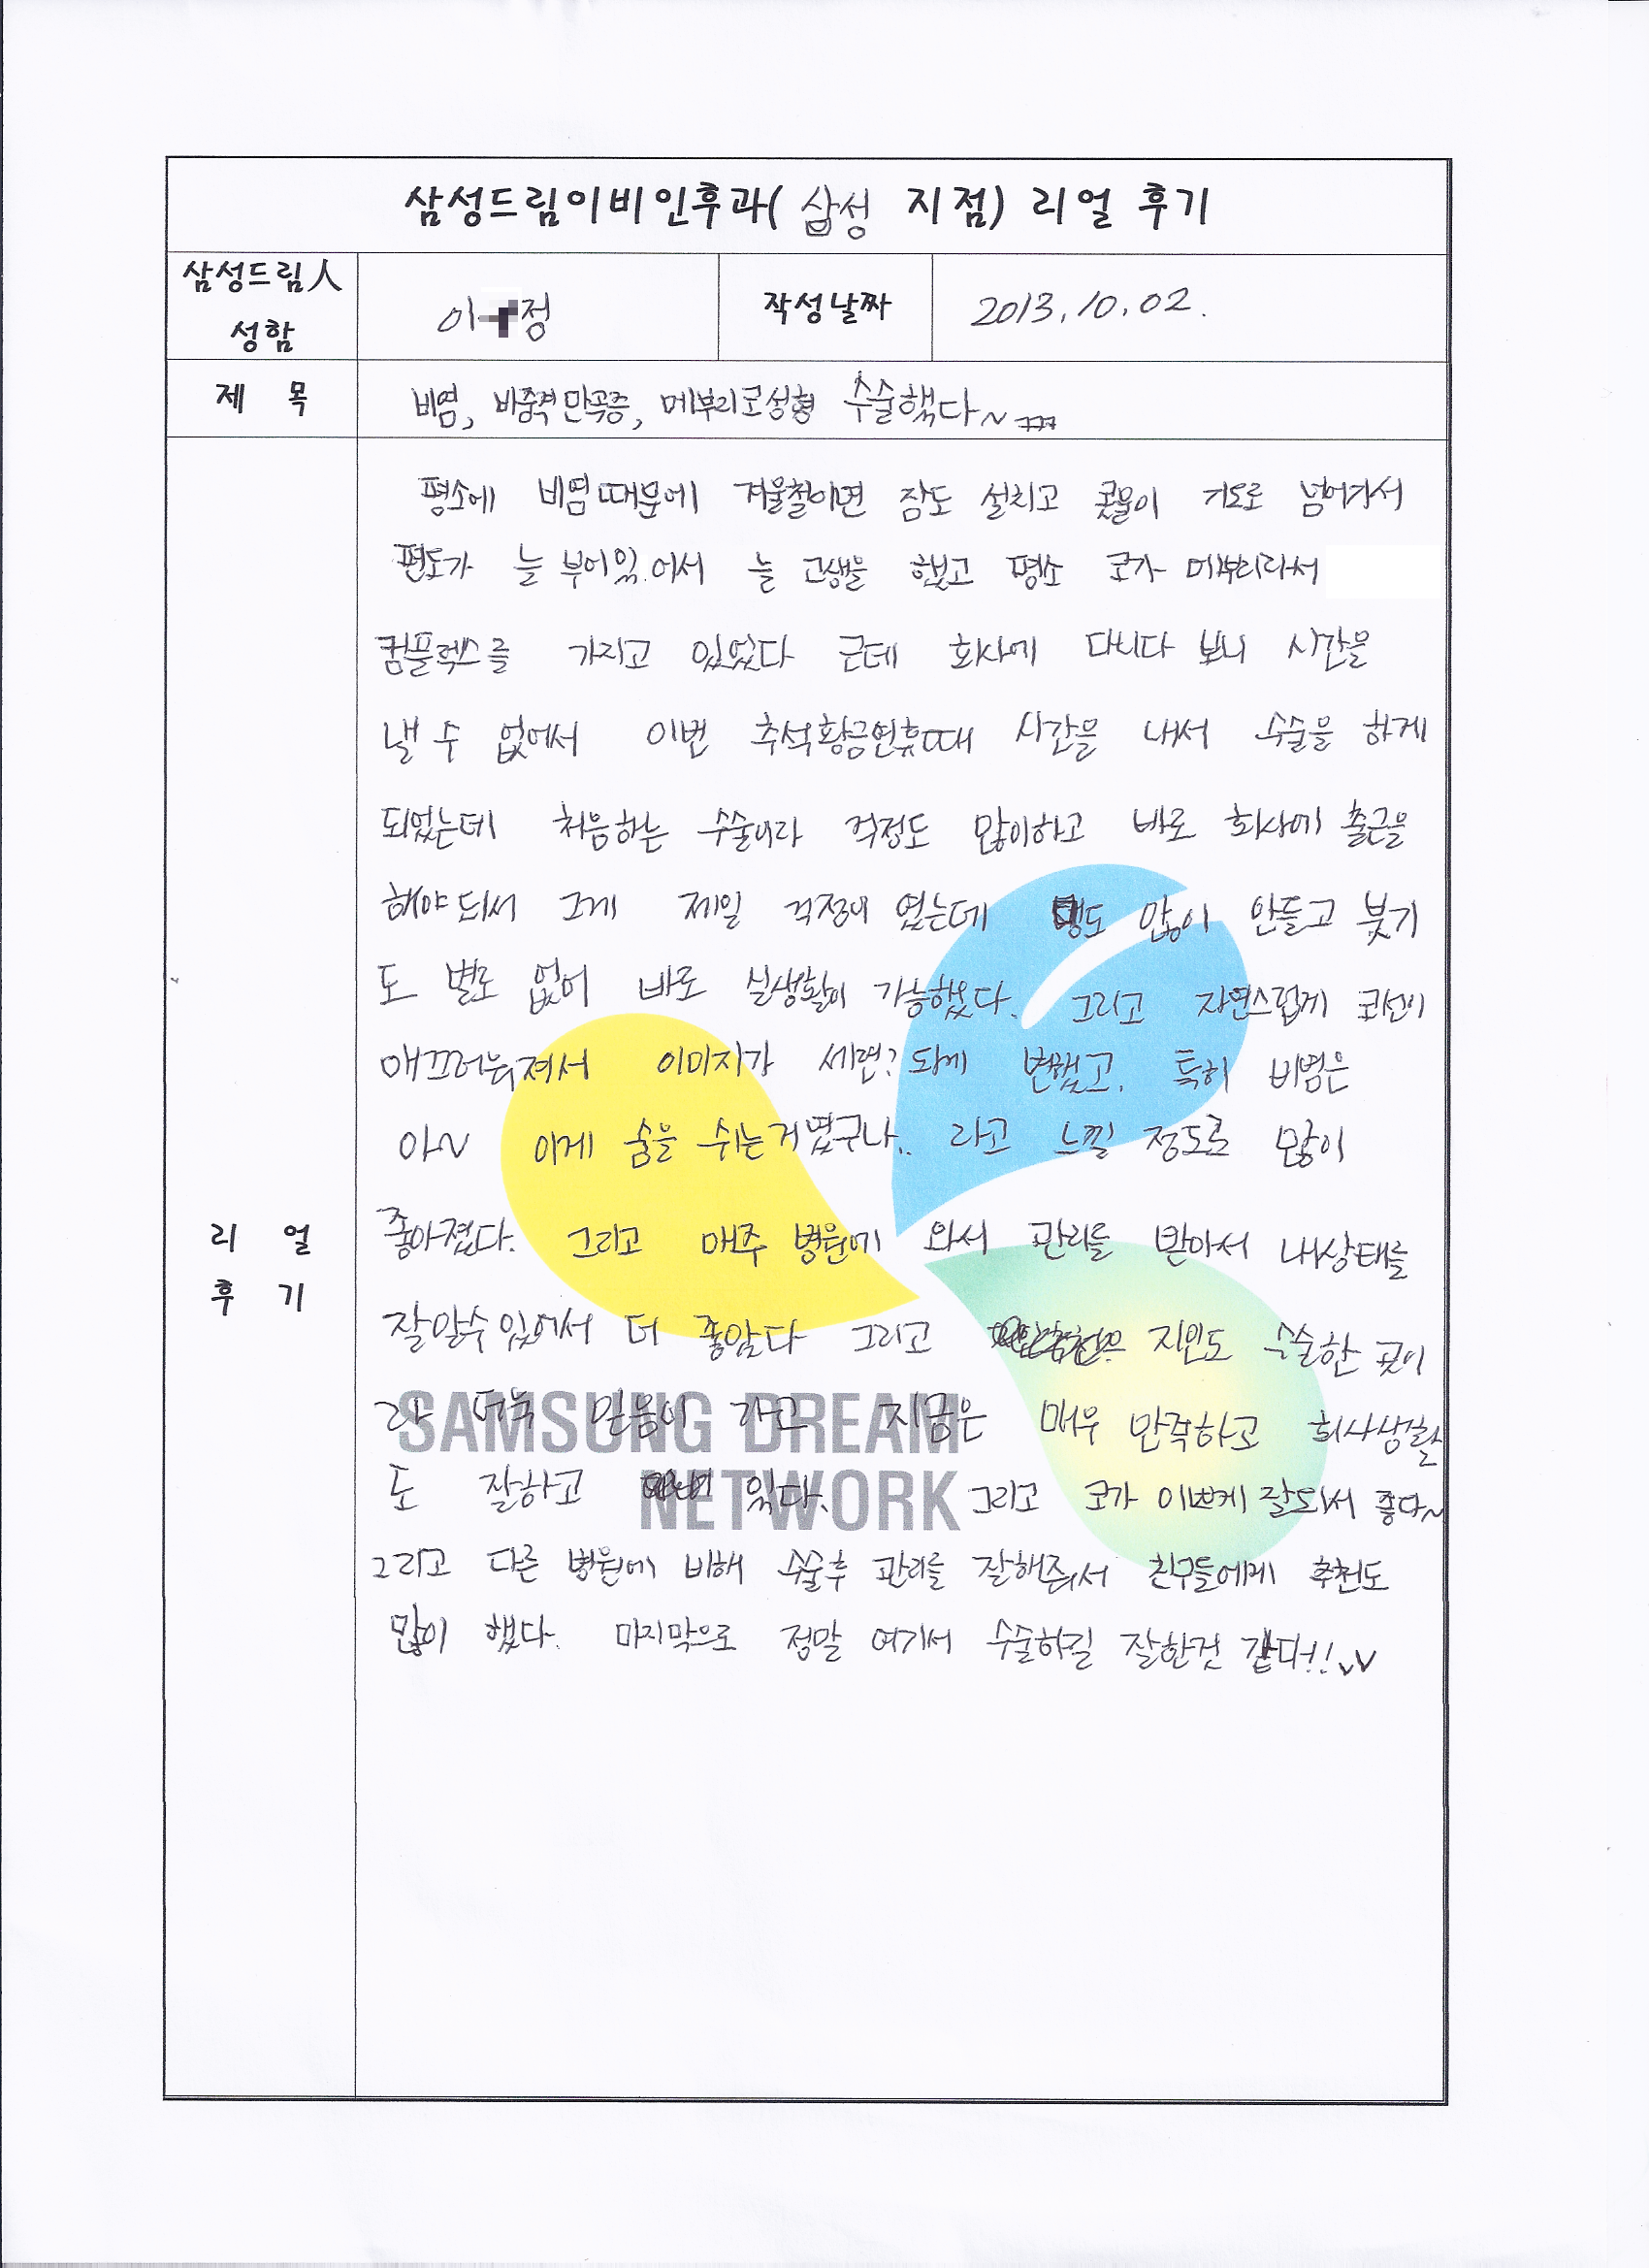 삼성드림이비인후과( 삼성 지점) 리얼 후기
삼성드림人
성함
이 정
작성날짜
2013. 10. 02.
제 목
비염, 비중격만곡증, 메부리코성형 수술했다~ ㅋㅋㅋ
평소에 비염때문에 겨울철이면 잠도 설치고 콧물이 기도로 넘어가서
편도가 늘 부어있어서 늘 고생을 했고 평소 코가 메부리라서
컴플렉스를 가지고 있었다 근데 회사에 다니다 보니 시간을
낼 수 없어서 이번 추석황금연휴때 시간을 내서 수술을 하게
되었는데 처음하는 수술이라 걱정도 많이하고 바로 회사에 출근을
해야되서 그게 제일 걱정이 였는데 멍도 많이 안들고 붓기
도 별로 없어 바로 실생활이 가능했다. 그리고 자연스럽게 코선이
매끄러워져서 이미지가 세련? 되게 변했고, 특히 비염은
아~ 이게 숨을 쉬는거였구나.. 라고 느낄 정도로 많이
좋아졌다. 그리고 매주 병원에 와서 관리를 받아서 내상태를
잘알수있어서 더 좋았다 그리고 지인도 수술한 곳이
라 더욱 믿음이 가고 지금은 매우 만족하고 회사생활
도 잘하고 있다. 그리고 코가 이쁘게 잘되서 좋다~
그리고 다른 병원에 비해 수술후 관리를 잘해줘서 친구들에게 추천도
많이 했다. 마지막으로 정말 여기서 수술하길 잘한것 같다!! vV
리 얼
후 기
SAMSUNG DREAM
NETWORK